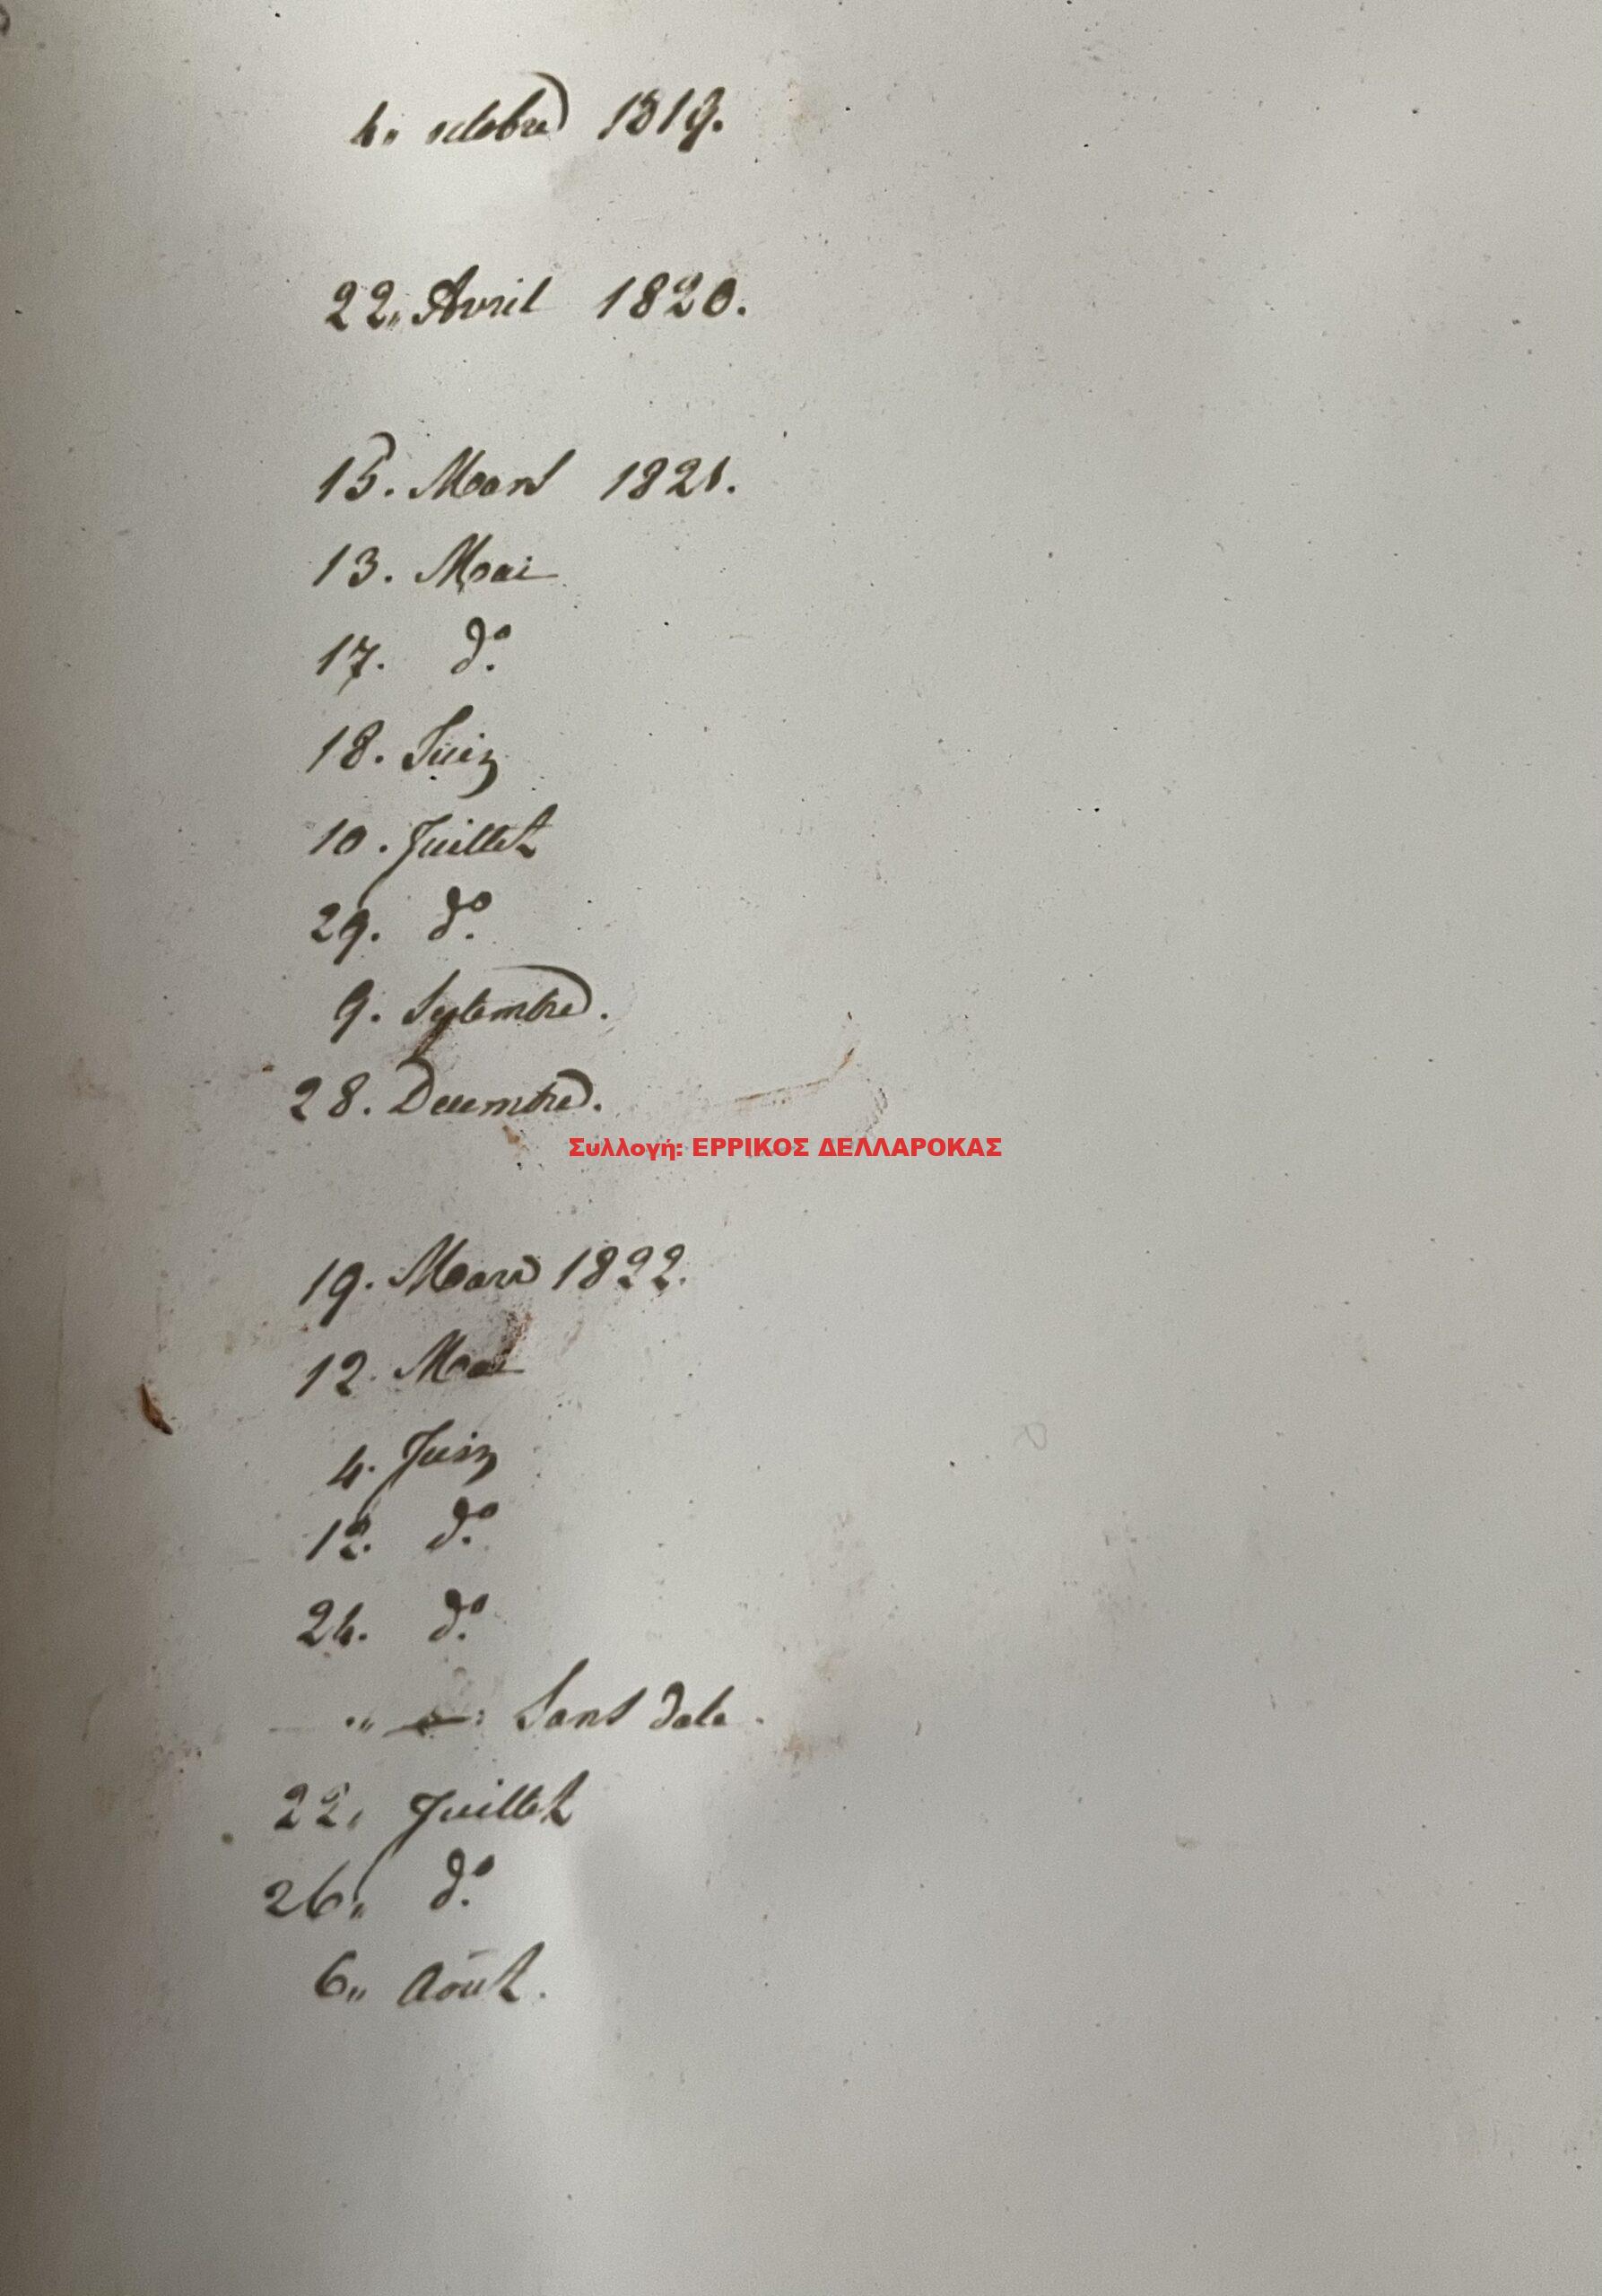 4„ octobre 1819.
22„ Avril 1820.
15. Mars 1821.
13. Mai
17. do.
18. Juin
10. Juillet
29. do.
9. Septembre.
28. Decembre.
Συλλογή: ΕΡΡΙΚΟΣ ΔΕΛΛΑΡΟΚΑΣ
19. Mars 1822.
12. Mai
4. Juin
12. do.
24. do.
„ Sans date.
22, Juillet
26„ do.
6„ Août.